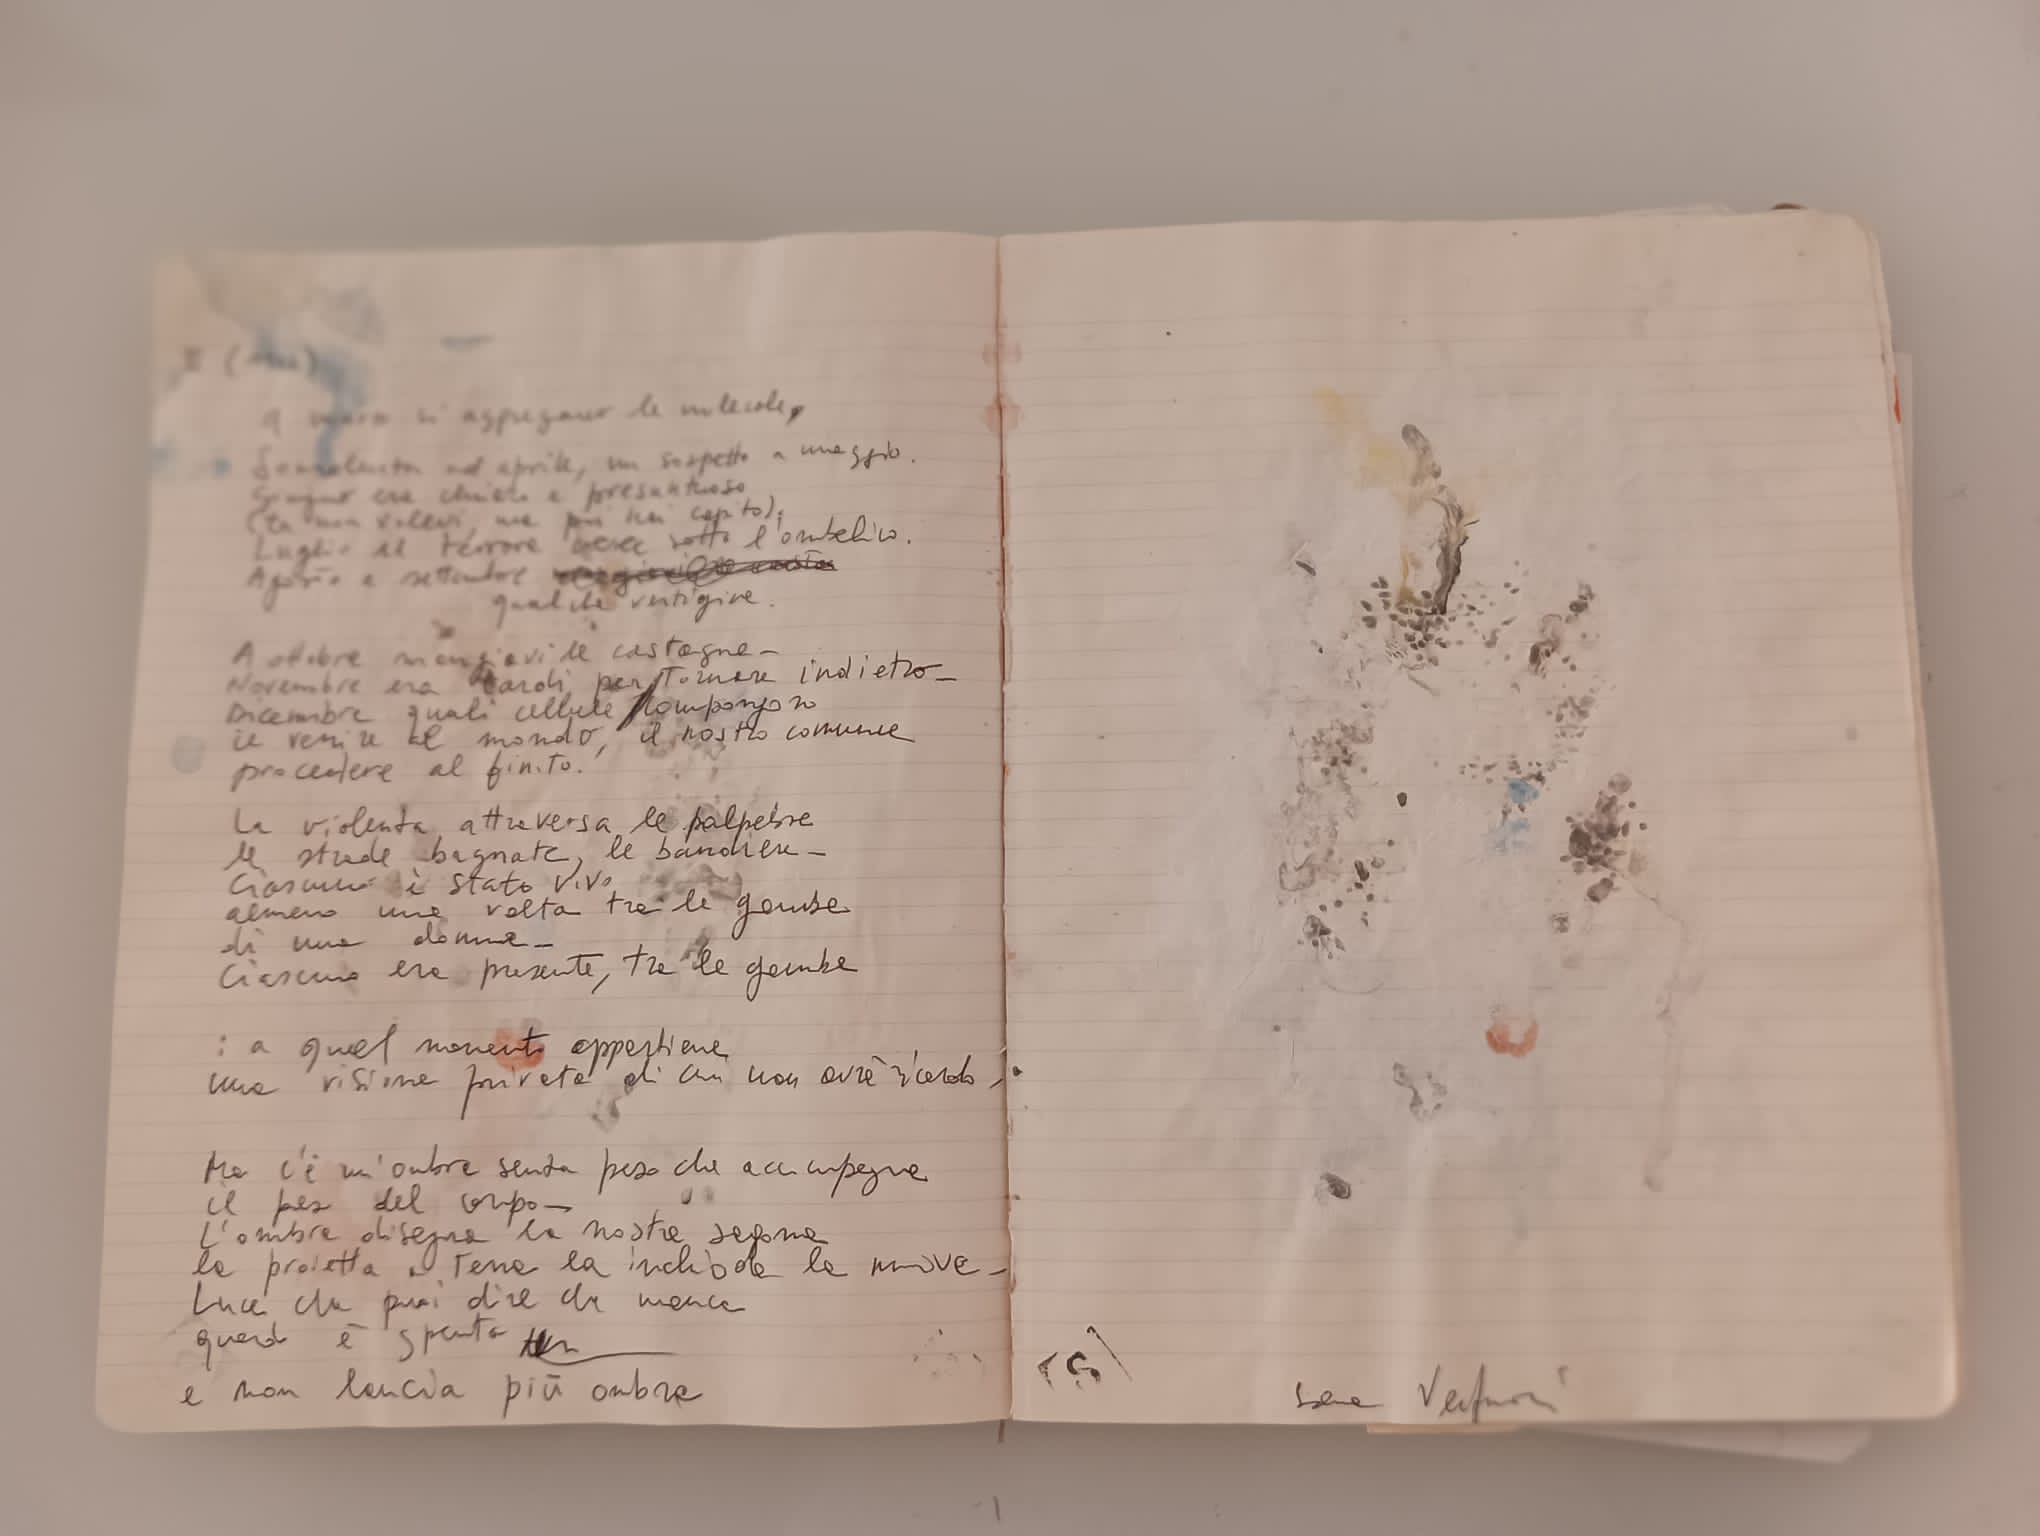 a marzo si aggregano le molecole,
Sonnolenta ad aprile, un sospetto a maggio.
Giugno era chiaro e presuntuoso
(tu non volevi, ma poi hai capito);
Luglio il terrore cresce sotto l'ombelico.
Agosto e settembre
qualche vertigine.
A ottobre mangiavi le castagne_
Novembre era tardi per tornare indietro_
Dicembre quali cellule compongono
il venire al mondo, il nostro comune
procedere al finito.
La violenza attraversa le palpebre
le strade bagnate, le bandiere_
Ciascuno è stato vivo
almeno una volta tra le gambe
di una donna_
Ciascuno era presente, tra le gambe
: a quel momento appartiene
una visione privata di cui non avrà ricordo,
Ma c'è un'ombra senza peso che accompagna
il peso del corpo_
L'ombra disegna la nostra sagoma
la proietta a terra la inchioda la muove_
Luce che puoi dire che manca
quando è spenta
e non lancia più ombra
(5)